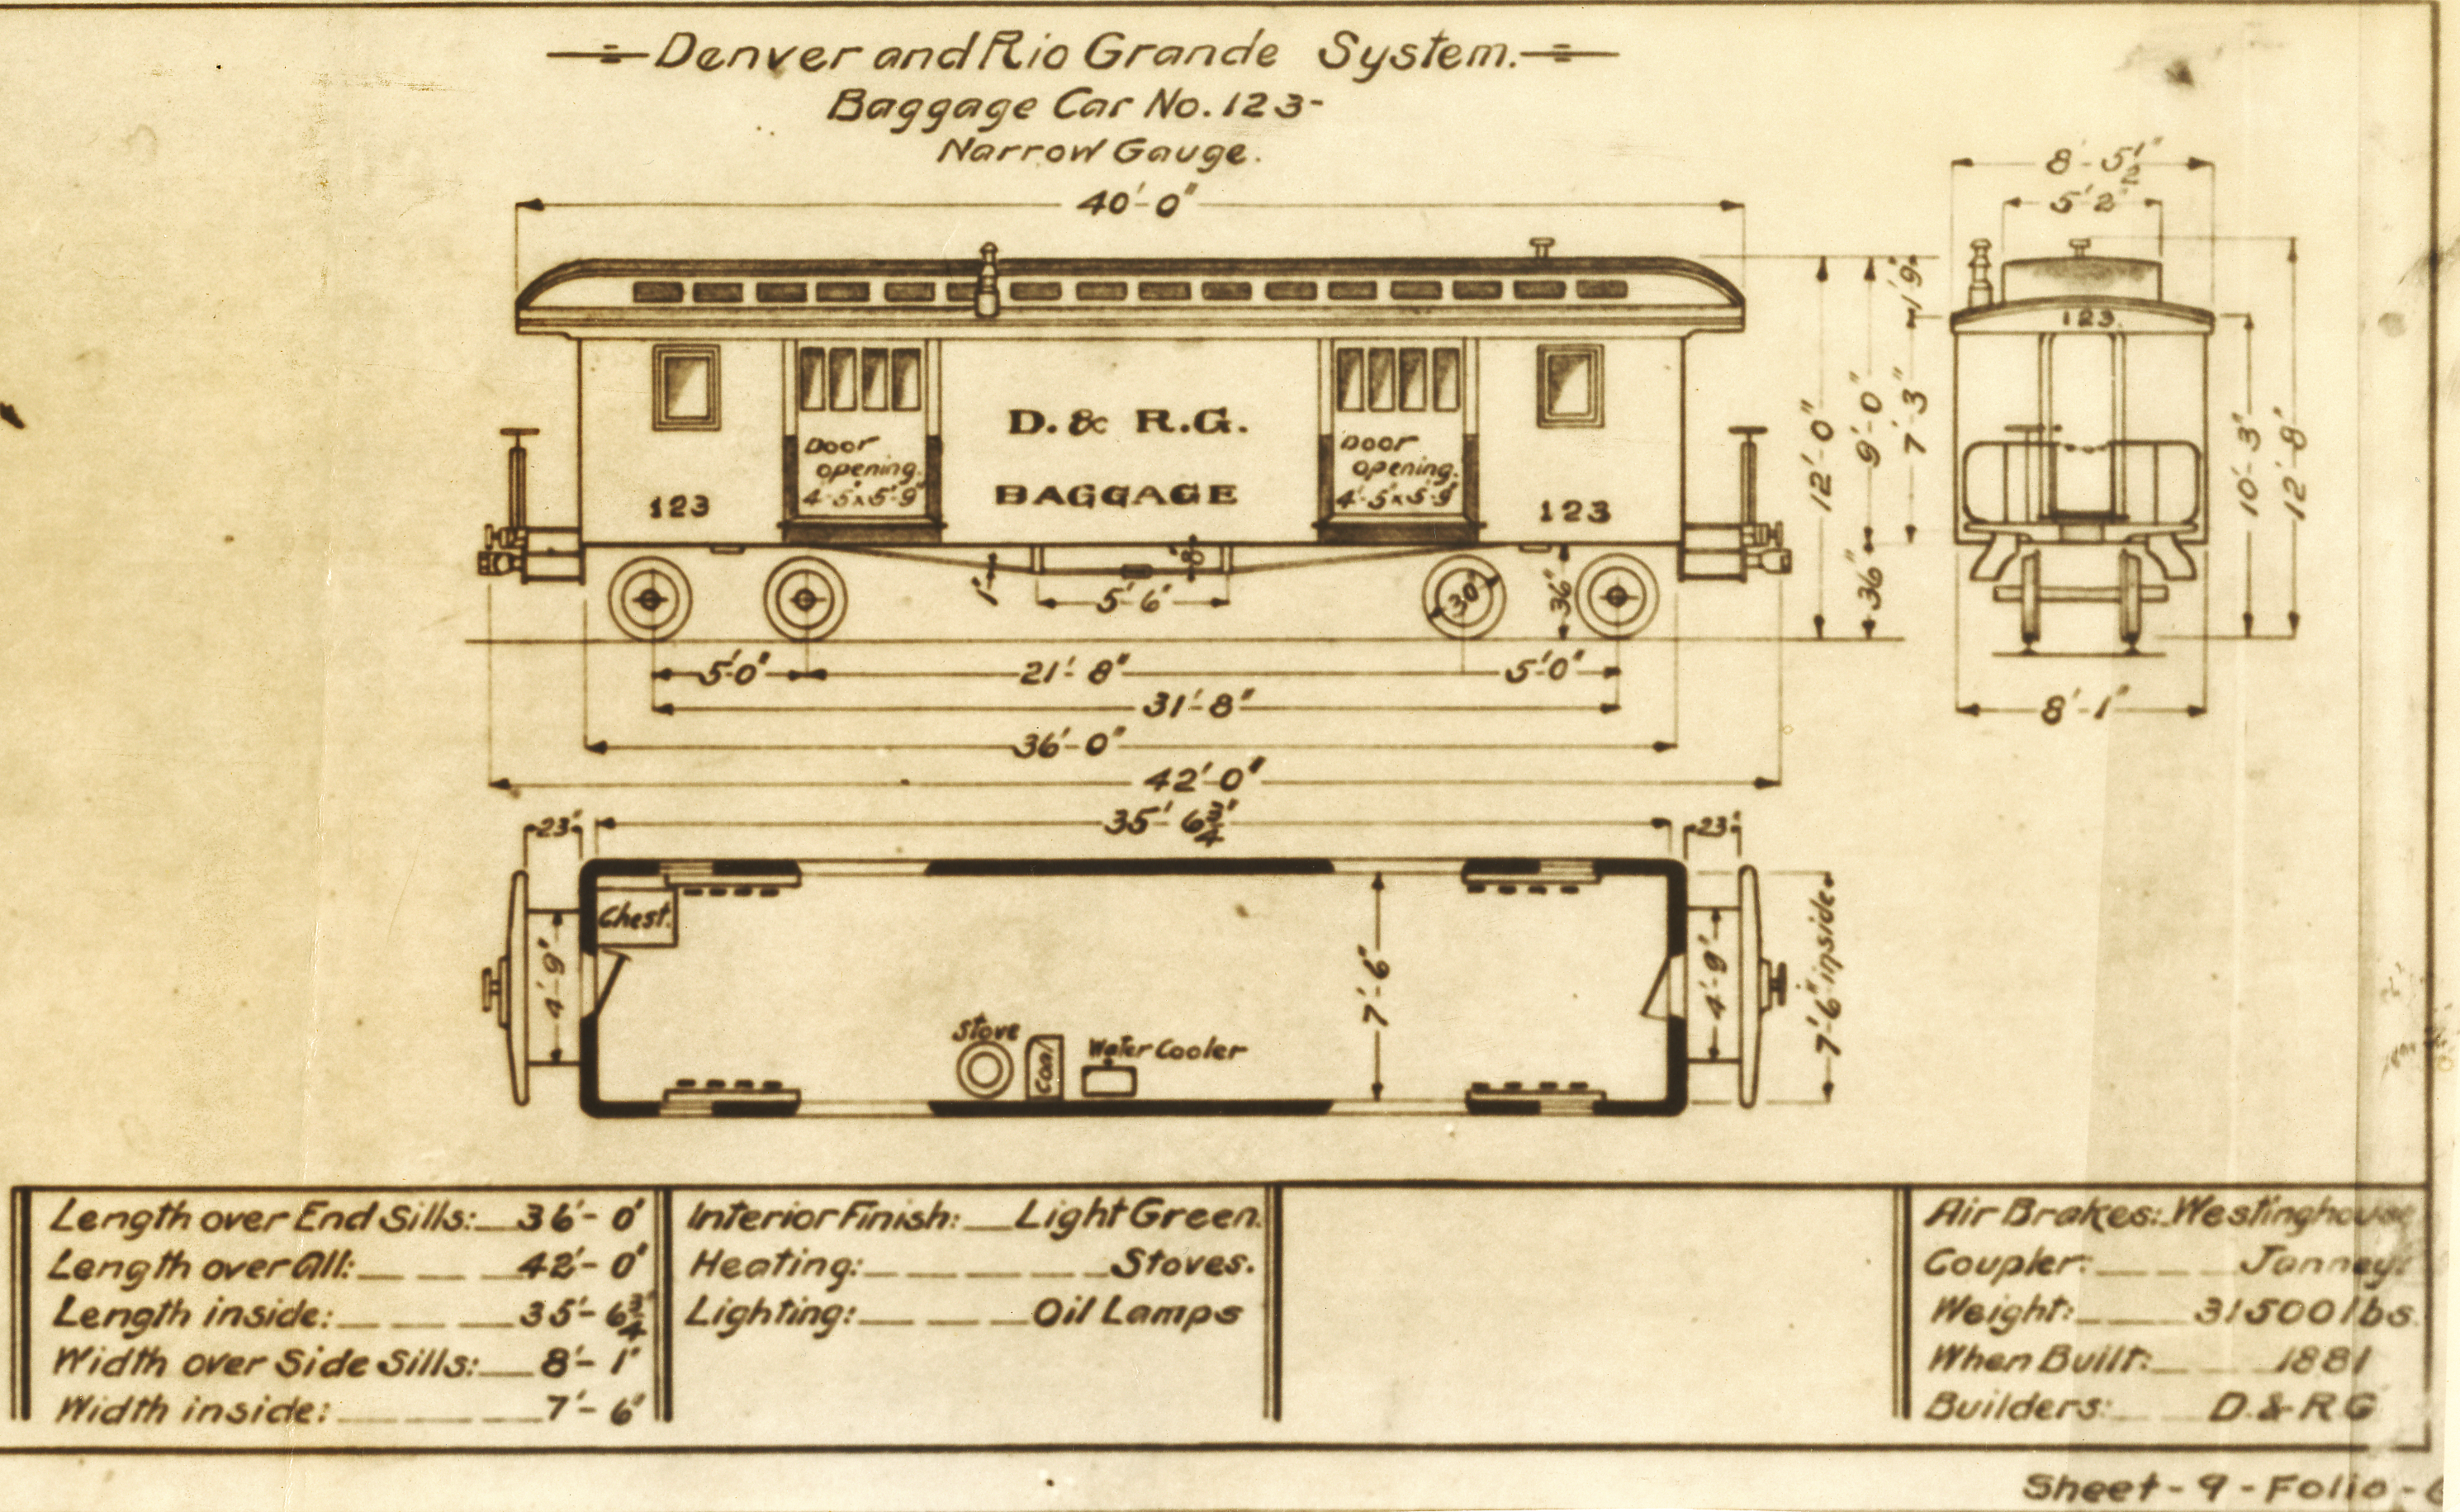 Denver and Rio Grande System.
Baggage Car No. 123-
Narrow Gauge.
40'-0"
8'-5½"
5'2"
123
1'9"
12'-0"
9'-0"
7'-3"
36"
10'-3"
12'-8"
8'-1"
Door opening. 4'-5"x5'-9"
D. & R.G.
BAGGAGE
Door opening. 4'-5"x5'-9"
123
123
1'
8"
5'-6"
30"
36"
5'-0"
21'-8"
5'-0"
31'-8"
36'-0"
42'-0"
35'-6¾"
23"
23"
Chest.
4'-9"
7'-6"
4'-9"
7'-6" inside.
Stove
Coal
Water Cooler
Length over End Sills: 36'-0"
Length over All: 42'-0"
Length inside: 35'-6¾"
Width over Side Sills: 8'-1"
Width inside: 7'-6"
Interior Finish: Light Green.
Heating: Stoves.
Lighting: Oil Lamps
Air Brakes: Westinghouse
Coupler: Janney.
Weight: 31500 lbs.
When Built: 1881
Builders: D. & R G
Sheet - 9 - Folio -